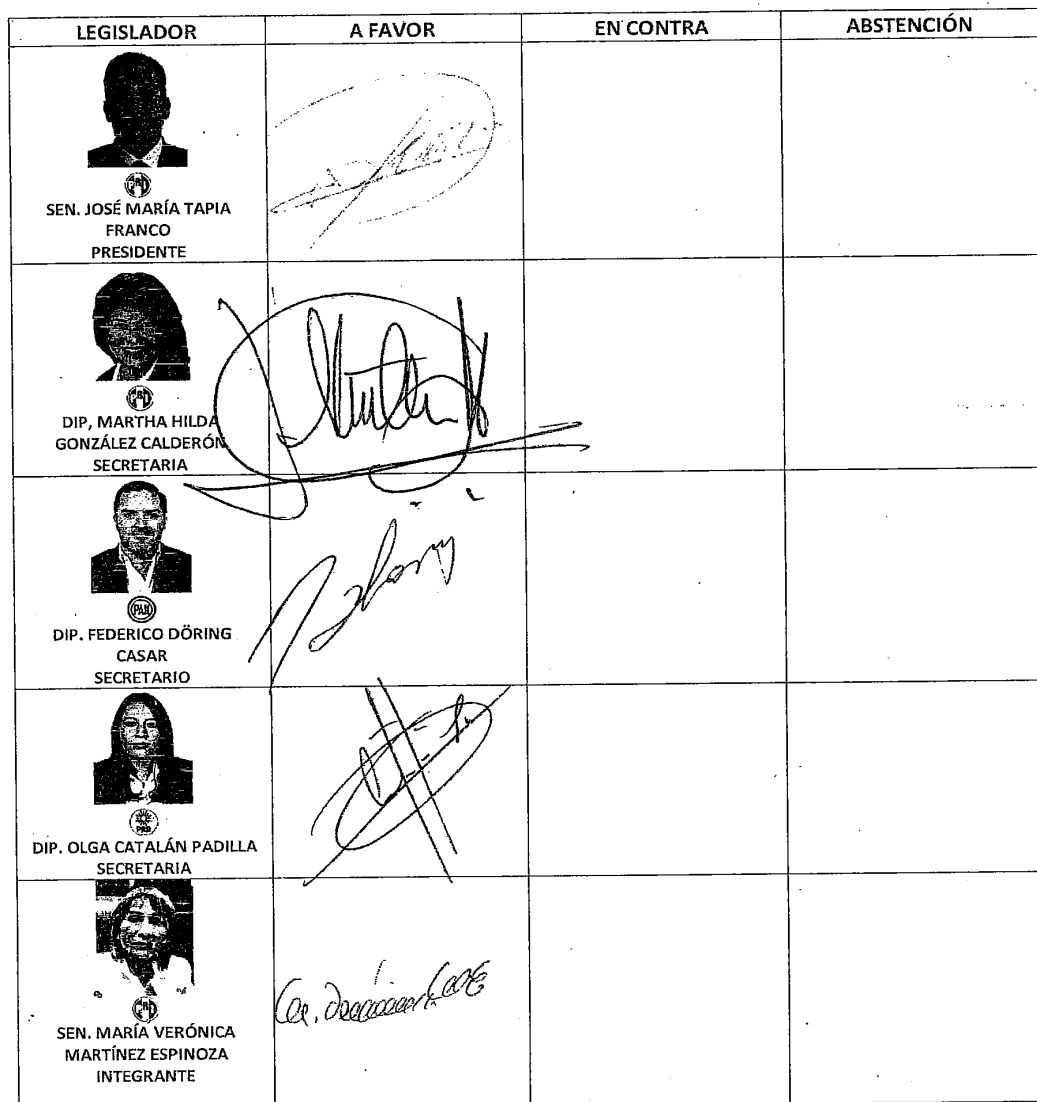 LEGISLADOR A FAVOR EN CONTRA ABSTENCIÓN
SEN. JOSÉ MARÍA TAPIA
FRANCO
PRESIDENTE
DIP, MARTHA HILDA
GONZÁLEZ CALDERÓN
SECRETARIA
PAN
DIP. FEDERICO DÖRING
CASAR
SECRETARIO
PRD
DIP. OLGA CATALÁN PADILLA
SECRETARIA
SEN. MARÍA VERÓNICA
MARTÍNEZ ESPINOZA
INTEGRANTE